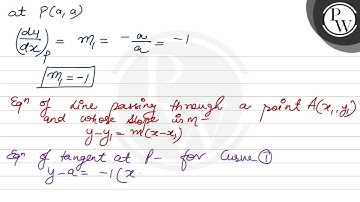 at P(a, a)
(dy/dx)_P = m₁ = -a/a = -1
m₁ = -1
Eqⁿ of line passing through a point A(x₁, y₁)
and whose slope is m-
y-y₁ = m(x-x₁)
Eqⁿ of tangent at P- for Curve ①
y-a = -1(x
PW